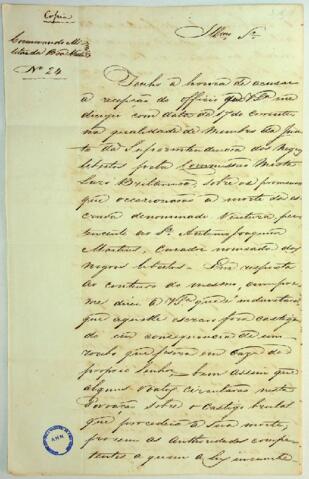 Copia
Commando Mi-
litar da Boa Vista
Nº 24
Illmo. Sr.
Tenho a honra de accusar
a recepção do officio que V.Sa. me
dirigio com data de 17 do corrente
na qualidade de Membro da Jun-
ta da Superintendencia dos Negros
libertos pela Commissão Mixta
Luzo Britannica, sobre os promenores
que occasionarão a morte da es-
crava denominada Ventura, per-
tencente ao Sr. Antonio Joaquim
Martins, Curador nomeado dos
Negros libertos. Em resposta
ao contheudo do mesmo, cumpre-
me dizer a V.Sa. que é indubitavel
que aquelle escravo fora castiga-
do em consequencia de um
roubo que fizera em caza do
proprio Senhor, bem assim que
alguns boatos circularão nesta
Povoação sobre o Castigo brutal
que procedeu a sua morte,
porem as Authoridades compe-
tentes a quem a Ley incumbe
AHN